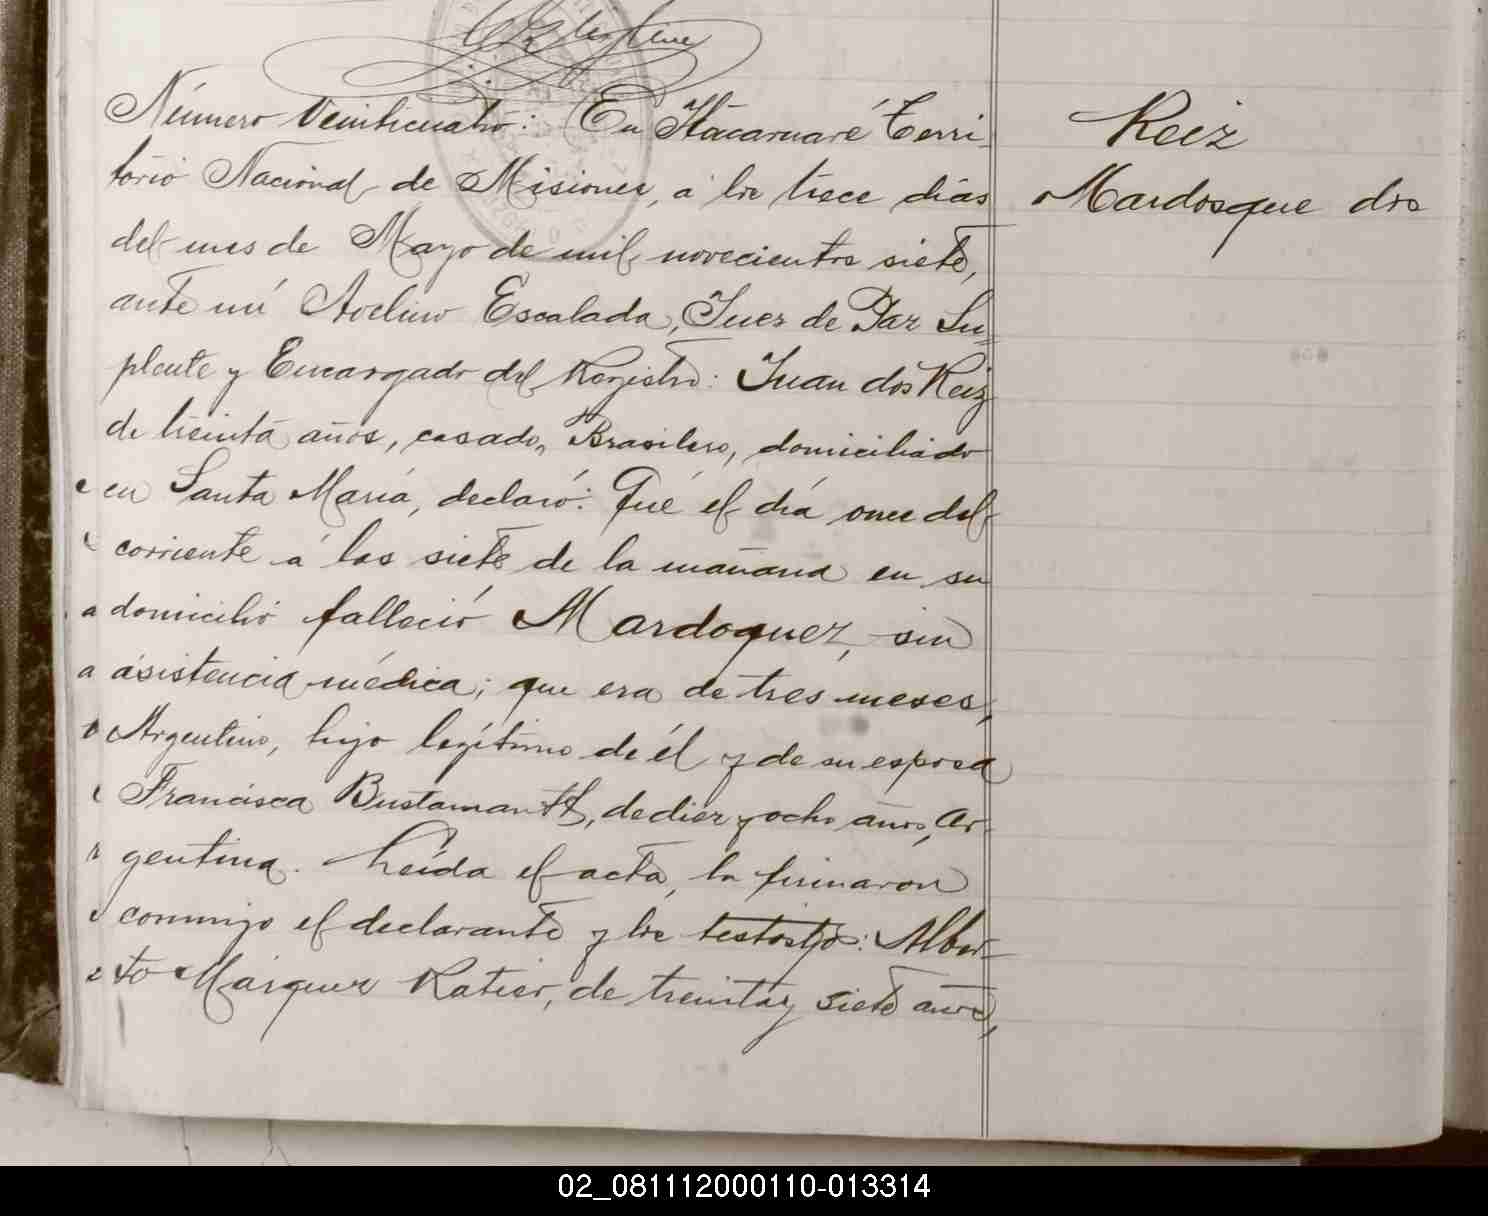 Número Veinticuatro: En Itacaruaré Terri-
torio Nacional de Misiones, a los trece días
del mes de Mayo de mil novecientos siete,
ante mi Avelino Escalada, Juez de Paz Su=
plente y Encargado del Registro: Juan dos Reiz
de treinta años, casado, Brasilero, domiciliado
en Santa María, declaró: Qué el día once del
corriente á las siete de la mañana en su
domicilio falleció Mardoquez, sin
asistencia médica; que era de tres meses,
Argentino, hijo legítimo de él y de su esposa
Francisca Bustamante, de diez y ocho años, Ar-
gentina. Leída el acta, la firmaron
conmigo el declarante y los testigos: Alber-
to Márquez Ratier, de treinta y siete años,
Reiz
Mardosque dos
02_081112000110-013314